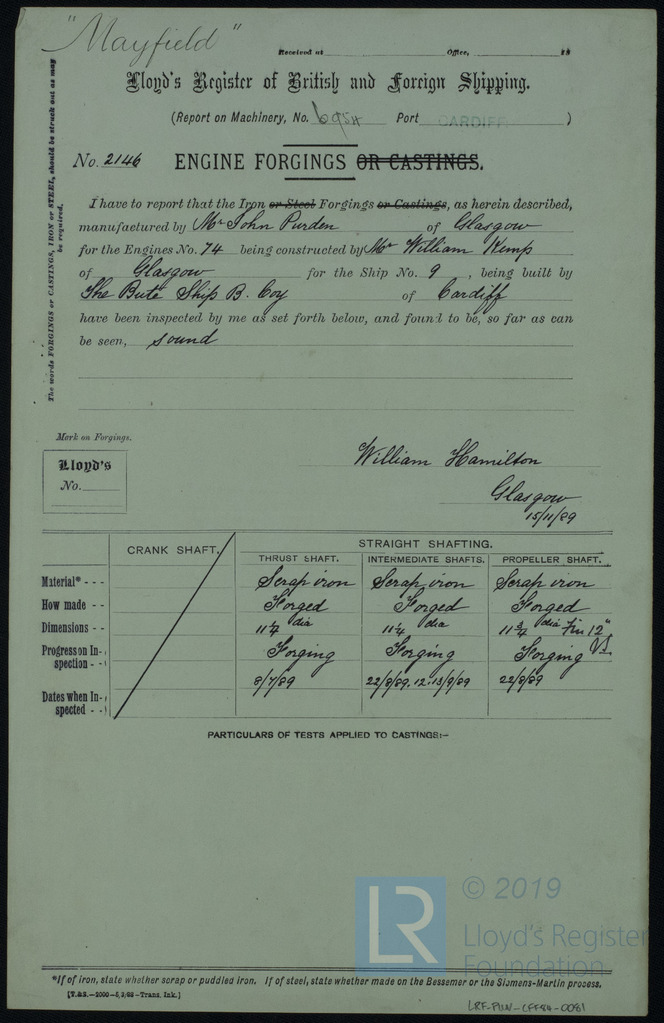 "Mayfield"
Received at Office, 18
Lloyd's Register of British and Foreign Shipping.
(Report on Machinery, No. Port CARDIFF )
No. 2146 ENGINE FORGINGS OR CASTINGS.
The words FORGINGS or CASTINGS, IRON or STEEL, should be struck out as may
be required.
I have to report that the Iron or Steel Forgings or Castings, as herein described,
manufactured by Mr John Purden of Glasgow
for the Engines No. 74 being constructed by Mr William Kemp
of Glasgow for the Ship No. 9, being built by
The Bute Ship B. Coy of Cardiff
have been inspected by me as set forth below, and found to be, so far as can
be seen, sound
Mark on Forgings.
Lloyd's
No.
William Hamilton
Glasgow
15/11/89
CRANK SHAFT. STRAIGHT SHAFTING.
THRUST SHAFT. INTERMEDIATE SHAFTS. PROPELLER SHAFT.
Material* - - - Scrap iron Scrap iron Scrap iron
How made - - Forged Forged Forged
Dimensions - - 11 1/4 dia 11 1/4 dia 11 3/4 dia Fin 12"
Progress on In-
spection - - Forging Forging Forging
Dates when In-
spected - - 8/7/89 22/8/89, 12.13/9/89 22/8/89
PARTICULARS OF TESTS APPLIED TO CASTINGS:-
LR © 2019
Lloyd's Register
Foundation
*If of iron, state whether scrap or puddled iron. If of steel, state whether made on the Bessemer or the Siemens-Martin process.
[T.&S.—2000—5,3/88—Trans. Ink.]
LRF-PUN-CFF84-0081